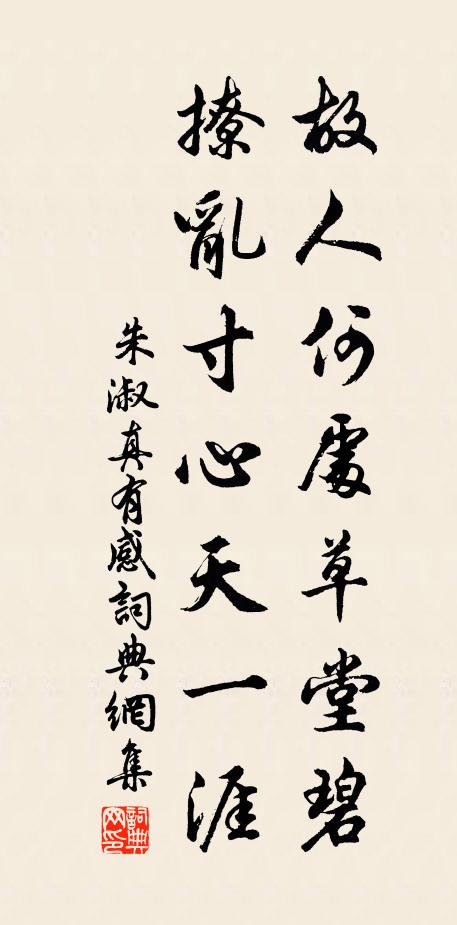 故人何處草堂碧
撩亂寸心天一涯
朱淑真有感詞典網集
詞典網印